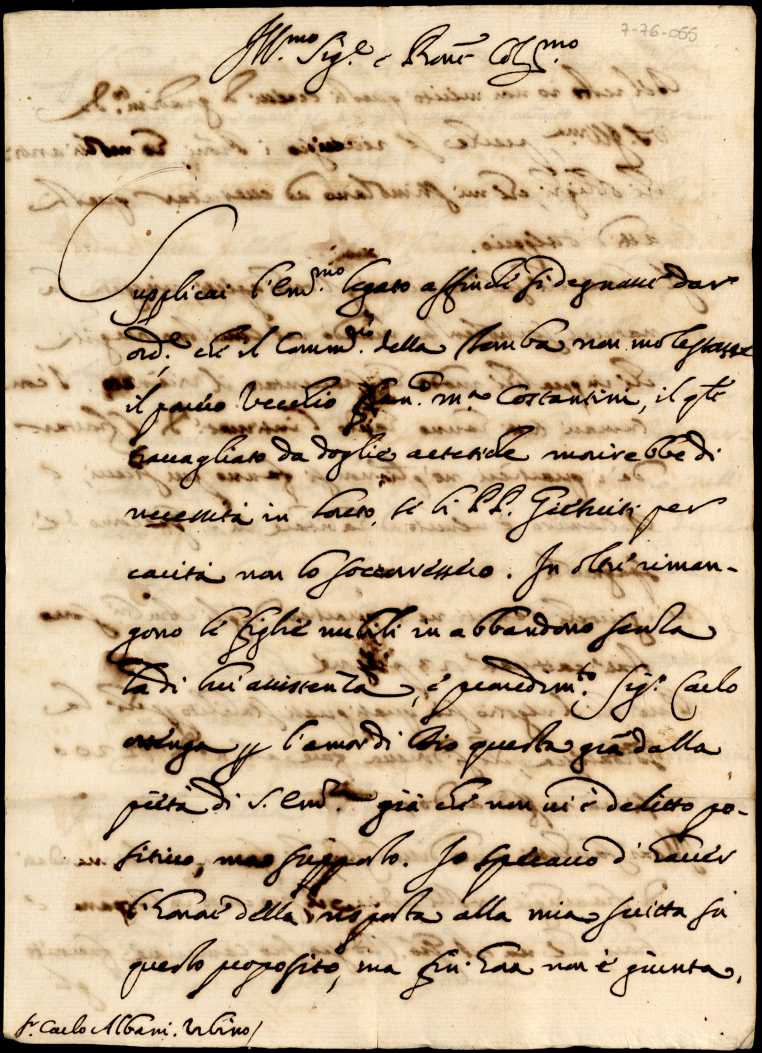 7-76-055
Ill.mo Sig.e e Rone Col.mo
Supplicai l'Em.mo legato affinché si degnasse dar
ord.e che il Comm.rio della Tomba non molestasse
il povero Vecchio m.ro Costantini, il qle
travagliato da doglie artetiche morirebbe di
necessità in loreto, se li PP. Giesuiti per
carità non lo soccorressero. In oltre riman-
gono le figlie nubili in abbandono senza
la di lui assistenza, e provedim.to Sig.r Carlo
ottenga p l'amor di Dio questa gra dalla
pietà di S. Em.za già che non vi è delitto po-
sitivo, ma supposto. Io speravo d'haver
l'honore della risposta alla mia scritta su
questo proposito, ma fin hora non è giunta.
Sr. Carlo Albani. Urbino/